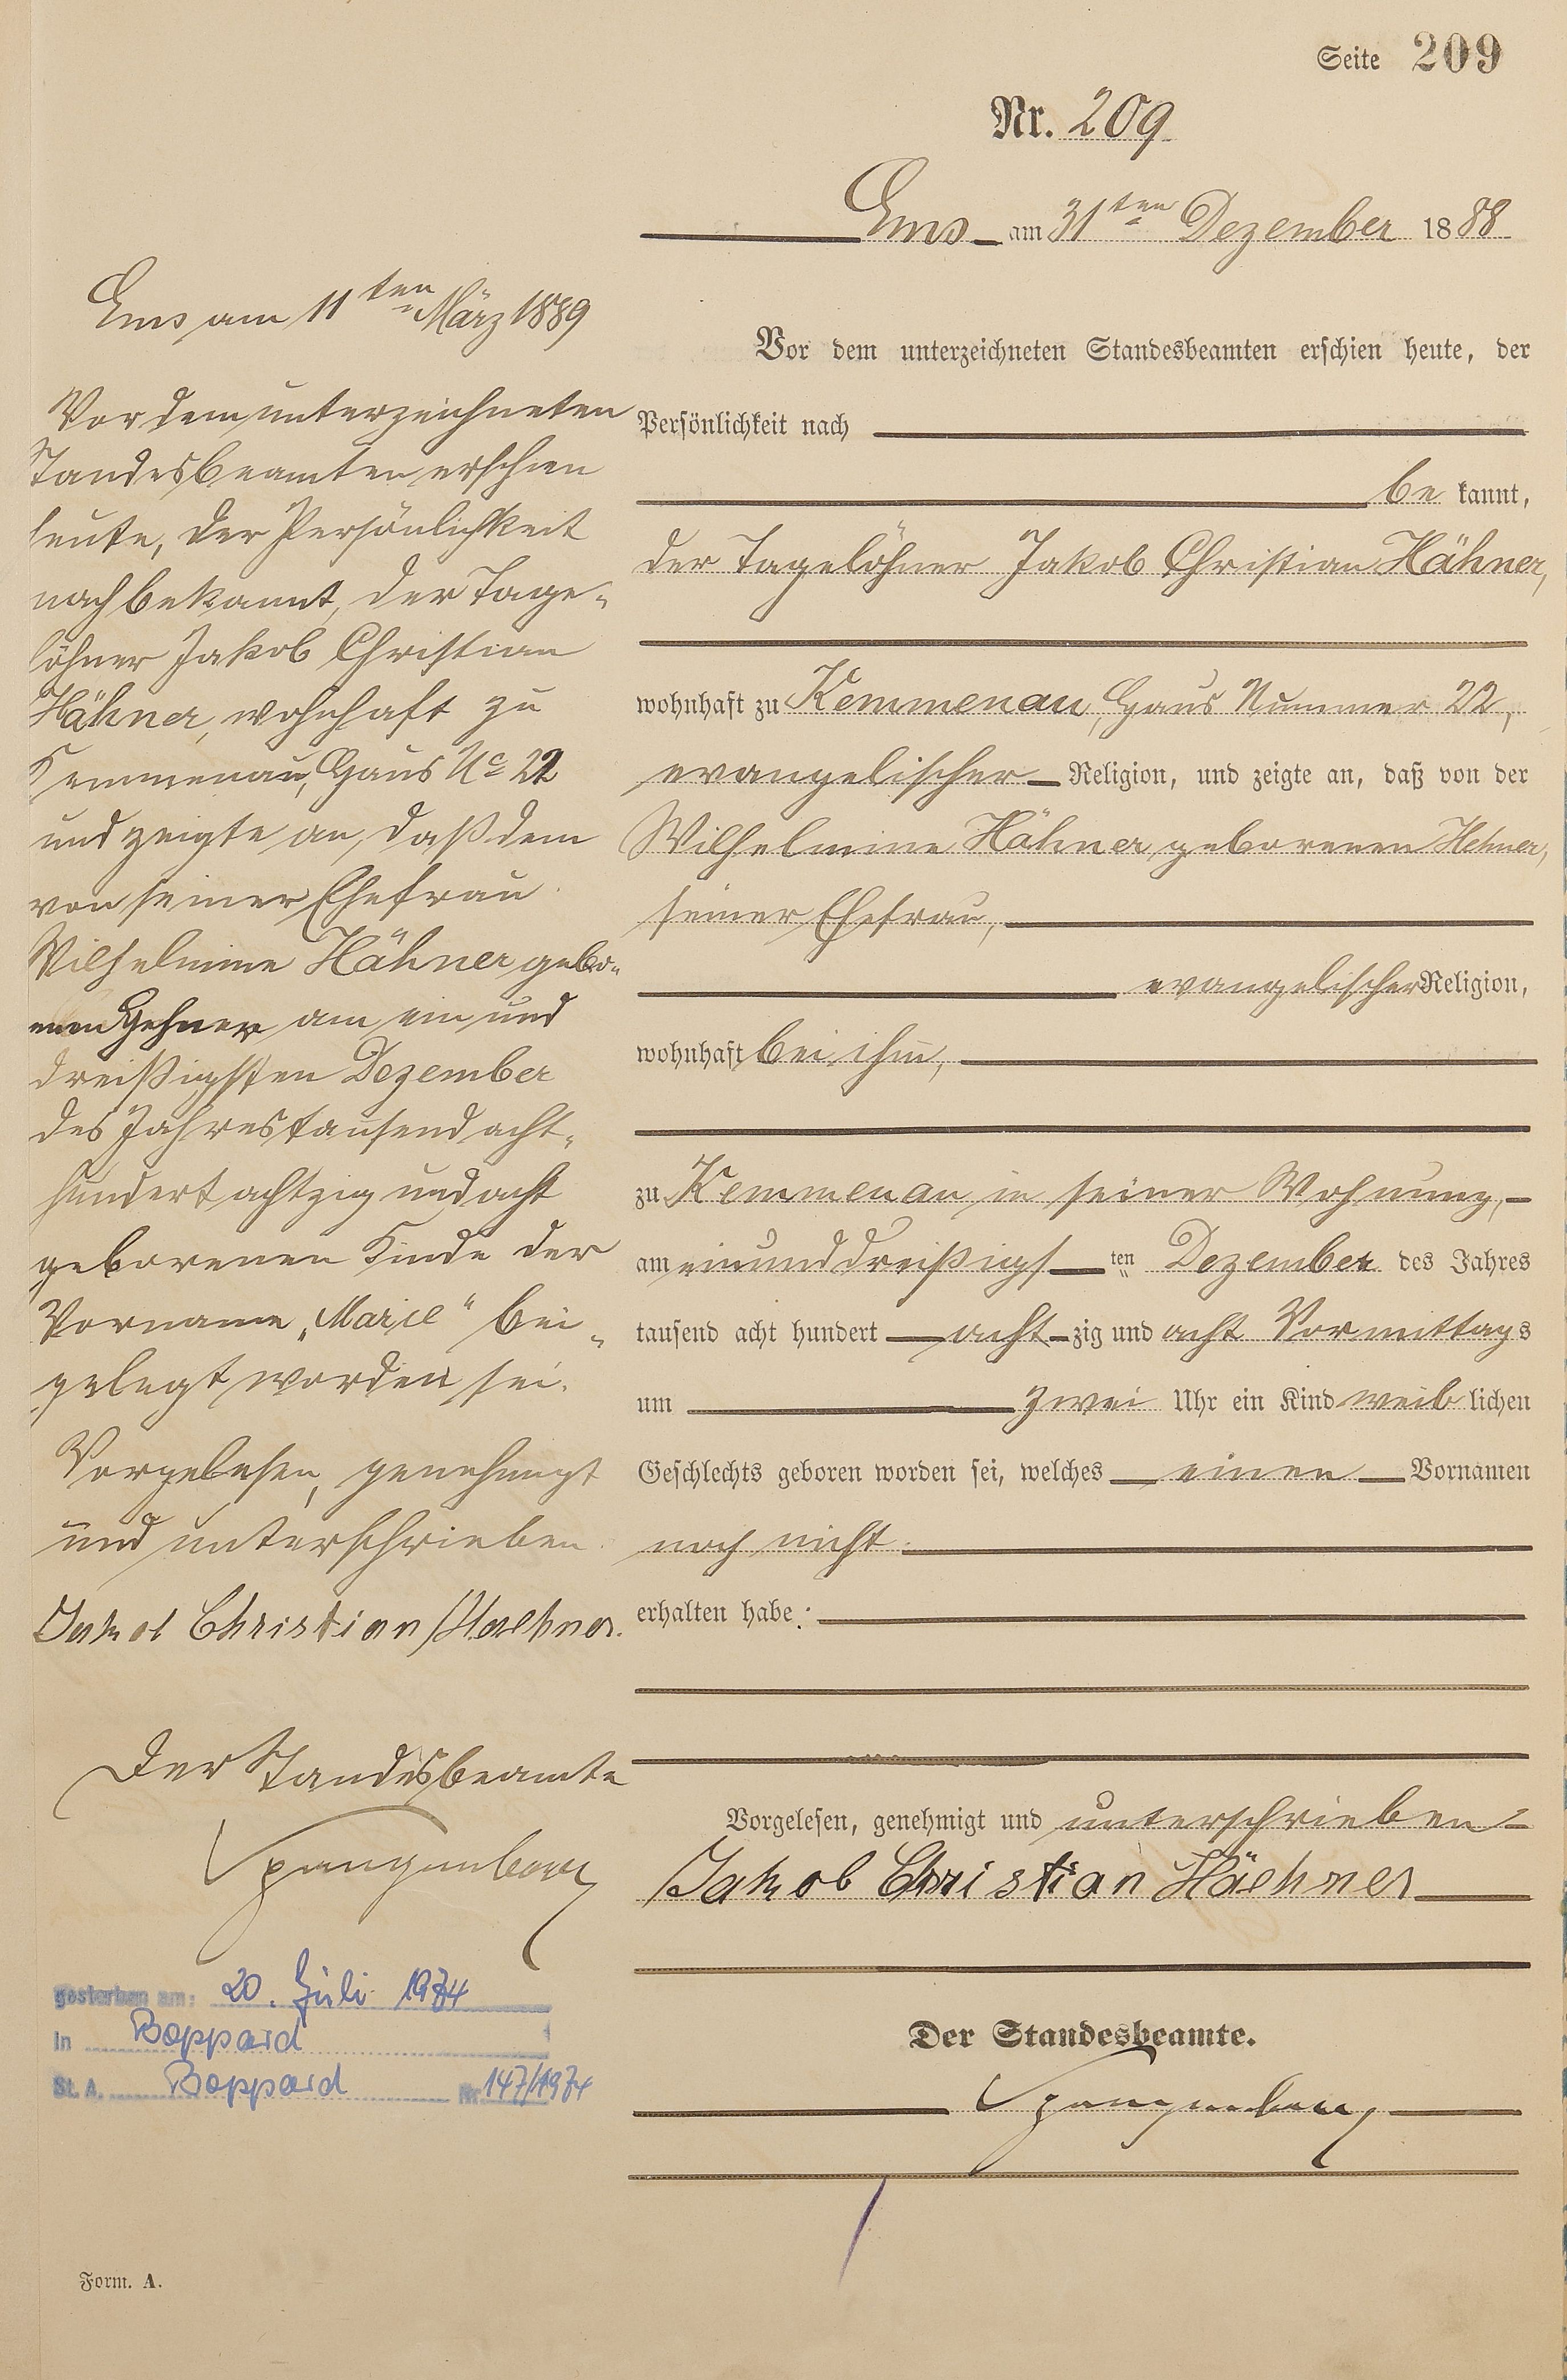 Seite 209
Nr. 209
Ems am 31ten Dezember 1888
Vor dem unterzeichneten Standesbeamten erschien heute, der
Persönlichkeit nach
be kannt,
der Tagelöhner Jakob Christian Hähner,
wohnhaft zu Kemmenau, Haus Nummer 22,
evangelischer Religion, und zeigte an, daß von der
Wilhelmine Hähner geborenen Hehner,
seiner Ehefrau,
evangelischer Religion,
wohnhaft bei ihm,
zu Kemmenau in seiner Wohnung,
am einunddreißigsten Dezember des Jahres
tausend acht hundert achtzig und acht Vormittags
um zwei Uhr ein Kind weiblichen
Geschlechts geboren worden sei, welches einen Vornamen
noch nicht
erhalten habe.
Vorgelesen, genehmigt und unterschrieben
Jakob Christian Häehner
Der Standesbeamte.
Spangenberg
Ems am 11ten März 1889
Vor dem unterzeichneten
Standesbeamten erschien
heute, der Persönlichkeit
nach bekannt, der Tage-
löhner Jakob Christian
Hähner, wohnhaft zu
Kemmenau, Haus No 22
und zeigte an, daß dem
von seiner Ehefrau
Wilhelmine Hähner gebo-
renen Hehner am ein und
dreißigsten Dezember
des Jahres tausend acht-
hundert achtzig und acht
geborenen Kinde der
Vorname „Marie" bei-
gelegt worden sei.
Vorgelesen, genehmigt
und unterschrieben
Jakob Christian Haehner.
Der Standesbeamte
Spangenberg
gestorben am: 20. Juli 1974
in Boppard
St. A. Boppard Nr. 147/1974
Form. A.